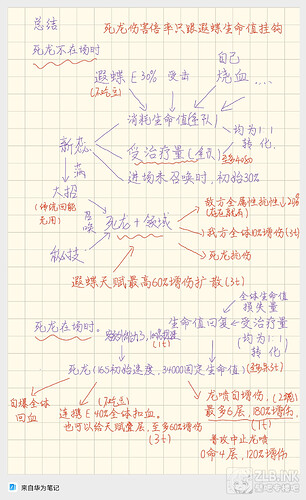 总结
死龙伤害倍率只跟遐蝶生命值挂钩
死龙不在场时
自己
遐蝶E30% 受击 烧血…
(不吃盾)
消耗生命值(全队)
均为1:1
新蕊
受治疗量(全队)
转化
满
进场未召唤时,初始30%
大招
(传统回能
无用)
召唤
死龙+领域
敌方全属性抗性↓20%
(存在就有)
我方全体10%增伤(3t)
秘技
死龙抗伤
遐蝶天赋最高60%增伤扩散(3t)
全体生命值
损失量
死龙在场时:
生命值回复←受治疗量
(1t)
(均为1:1
转化)
死龙(165初始速度,34000固定生命值)
自爆全体
回血
连携E 40%全体扣血。
也可以给天赋叠层,至多60%增伤
(3t)
龙喷自增伤,
最多6层,180%增伤
(1t)
0命4层,120%增伤
来自华为笔记
ZLB.INK